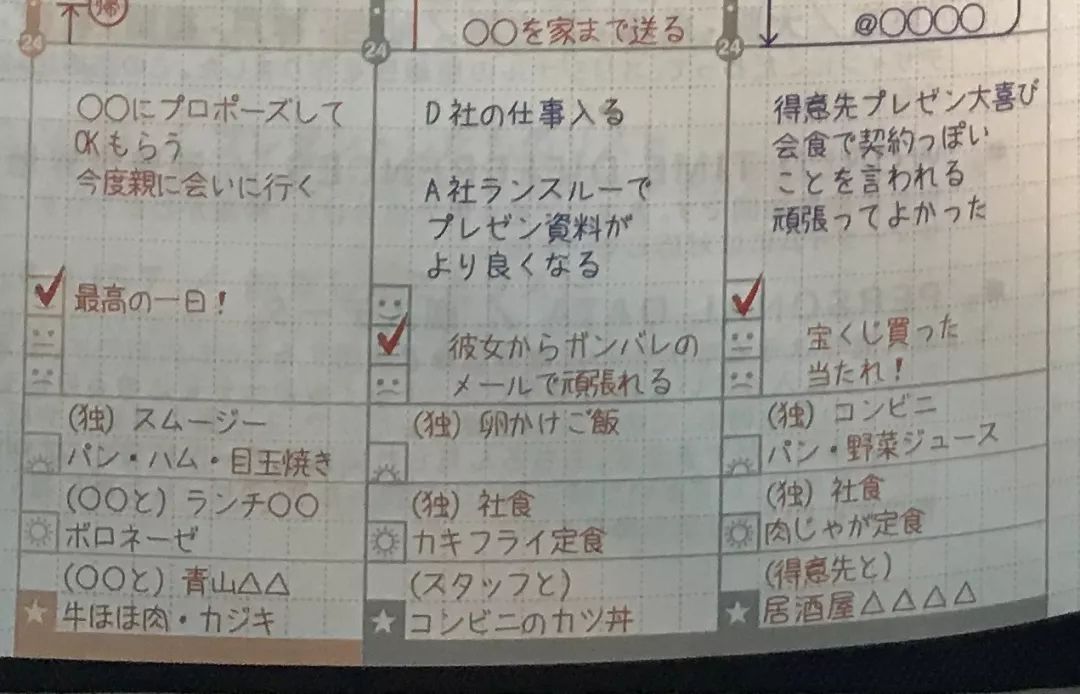 帰
○○を家まで送る
@○○○○
24
24
24
○○にプロポーズして
OKもらう
今度親に会いに行く
最高の一日!
(独) スムージー
パン・ハム・目玉焼き
(○○と) ランチ○○
ボロネーゼ
(○○と) 青山△△
牛ほほ肉・カジキ
D社の仕事入る
A社ランスルーで
プレゼン資料が
より良くなる
彼女からガンバレの
メールで頑張れる
(独) 卵かけご飯
(独) 社食
カキフライ定食
(スタッフと)
コンビニのカツ丼
得意先プレゼン大喜び
会食で契約っぽい
ことを言われる
頑張ってよかった
宝くじ買った
当たれ!
(独) コンビニ
パン・野菜ジュース
(独) 社食
肉じゃが定食
(得意先と)
居酒屋△△△△